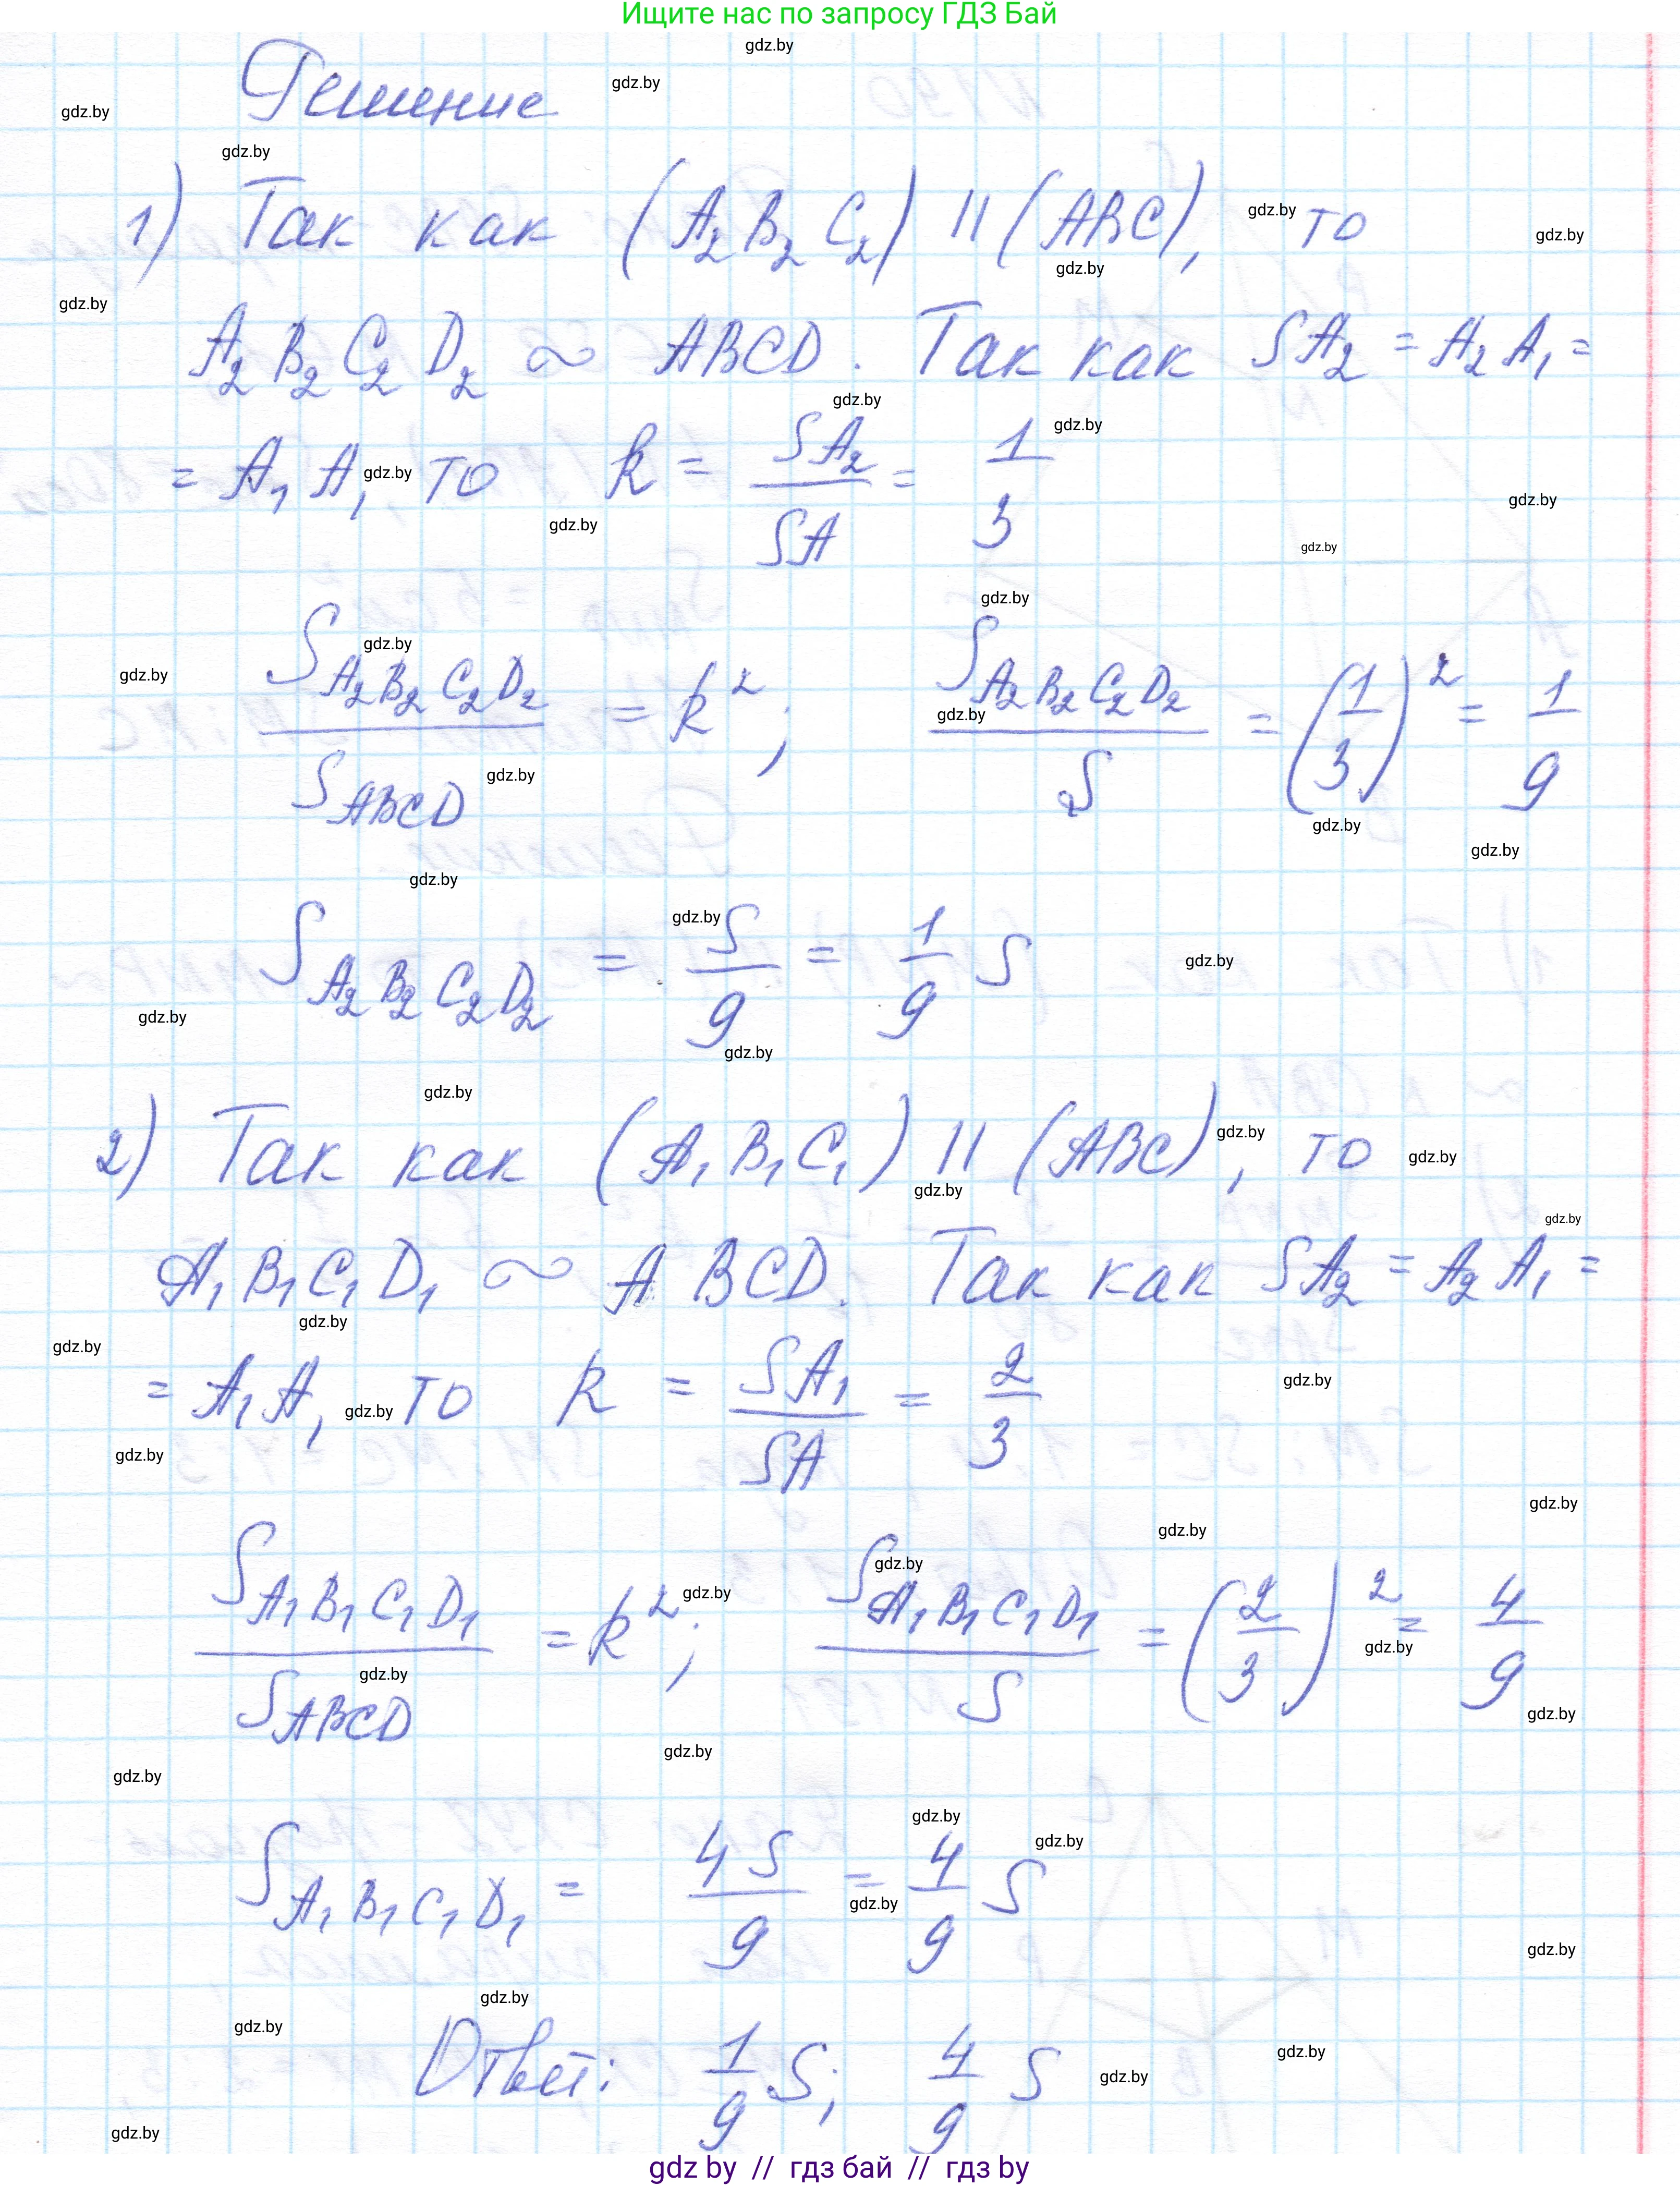 Ищите нас по запросу ГДЗ Бай
Решение
1) Так как (A₂B₂C₂) || (ABC), то
A₂B₂C₂D₂ ~ ABCD. Так как SA₂ = A₂A₁ =
= A₁A, то k = SA₂/SA = 1/3
S_{A₂B₂C₂D₂}/S_{ABCD} = k²; S_{A₂B₂C₂D₂}/S = (1/3)² = 1/9
S_{A₂B₂C₂D₂} = S/9 = 1/9 S
2) Так как (A₁B₁C₁) || (ABC), то
A₁B₁C₁D₁ ~ ABCD. Так как SA₂ = A₂A₁ =
= A₁A, то k = SA₁/SA = 2/3
S_{A₁B₁C₁D₁}/S_{ABCD} = k²; S_{A₁B₁C₁D₁}/S = (2/3)² = 4/9
S_{A₁B₁C₁D₁} = 4S/9 = 4/9 S
Ответ: 1/9 S; 4/9 S
gdz by // гдз бай // гдз by